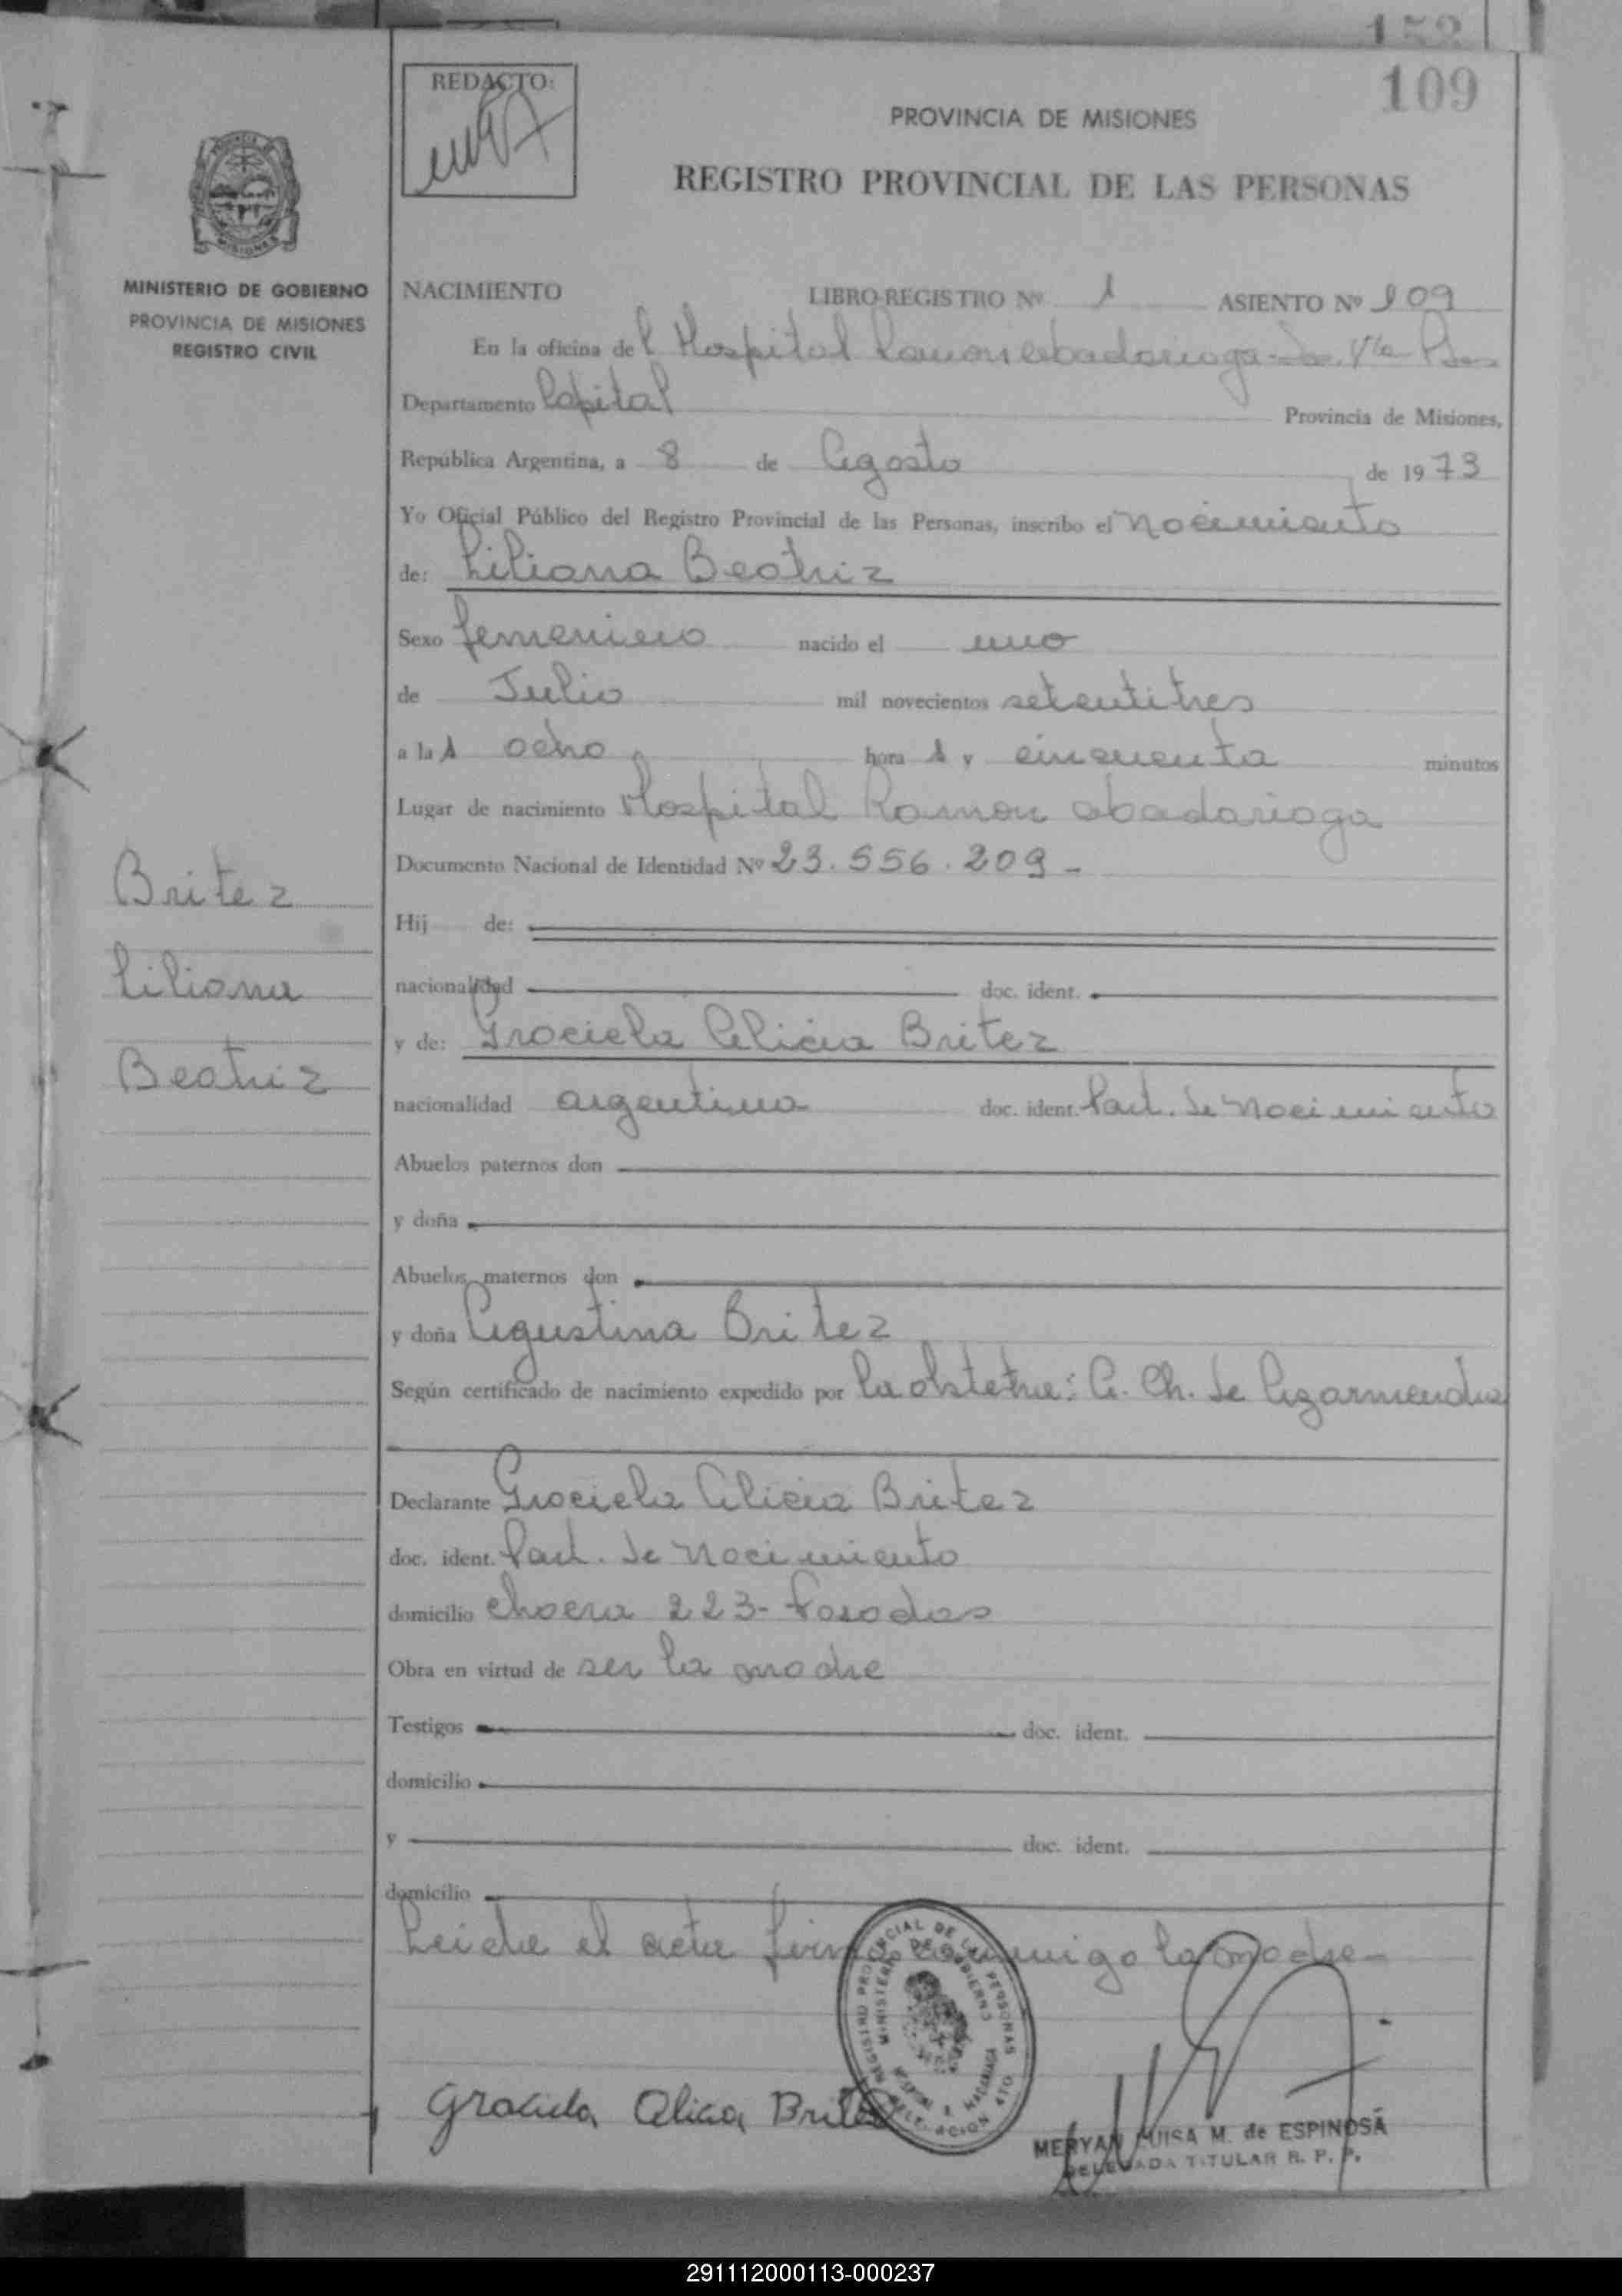 152
109
REDACTO:
PROVINCIA DE MISIONES
REGISTRO PROVINCIAL DE LAS PERSONAS
MINISTERIO DE GOBIERNO
PROVINCIA DE MISIONES
REGISTRO CIVIL
NACIMIENTO LIBRO-REGISTRO Nº 1 ASIENTO Nº 109
En la oficina del Hospital Ramon abadariaga
Departamento Capital Provincia de Misiones,
República Argentina, a 8 de Agosto de 1973
Yo Oficial Público del Registro Provincial de las Personas, inscribo el Nacimiento
de: Liliana Beatriz
Sexo femenino nacido el uno
de Julio mil novecientos setentitres
a las ocho horas y cincuenta minutos
Lugar de nacimiento Hospital Ramon abadariaga
Documento Nacional de Identidad Nº 23.556.209-
Britez
Hij de:
Liliana
nacionalidad doc. ident.
y de: Graciela Alicia Britez
Beatriz
nacionalidad argentina doc. ident. Part. de Nacimiento
Abuelos paternos don
y doña
Abuelos maternos don
y doña Agustina Britez
Según certificado de nacimiento expedido por La obstetra: A. Ch. de
Declarante Graciela Alicia Britez
doc. ident. Part. de Nacimiento
domicilio chacra 223- Posadas
Obra en virtud de ser la madre
Testigos doc. ident.
domicilio
y doc. ident.
domicilio
Leida el acta firma conmigo la madre-
REGISTRO PROVINCIAL DE LAS PERSONAS
MINISTERIO DE GOBIERNO
Graciela Alicia Britez
MERYAN LUISA M. de ESPINOSA
DELEGADA TITULAR R. P. P.
291112000113-000237